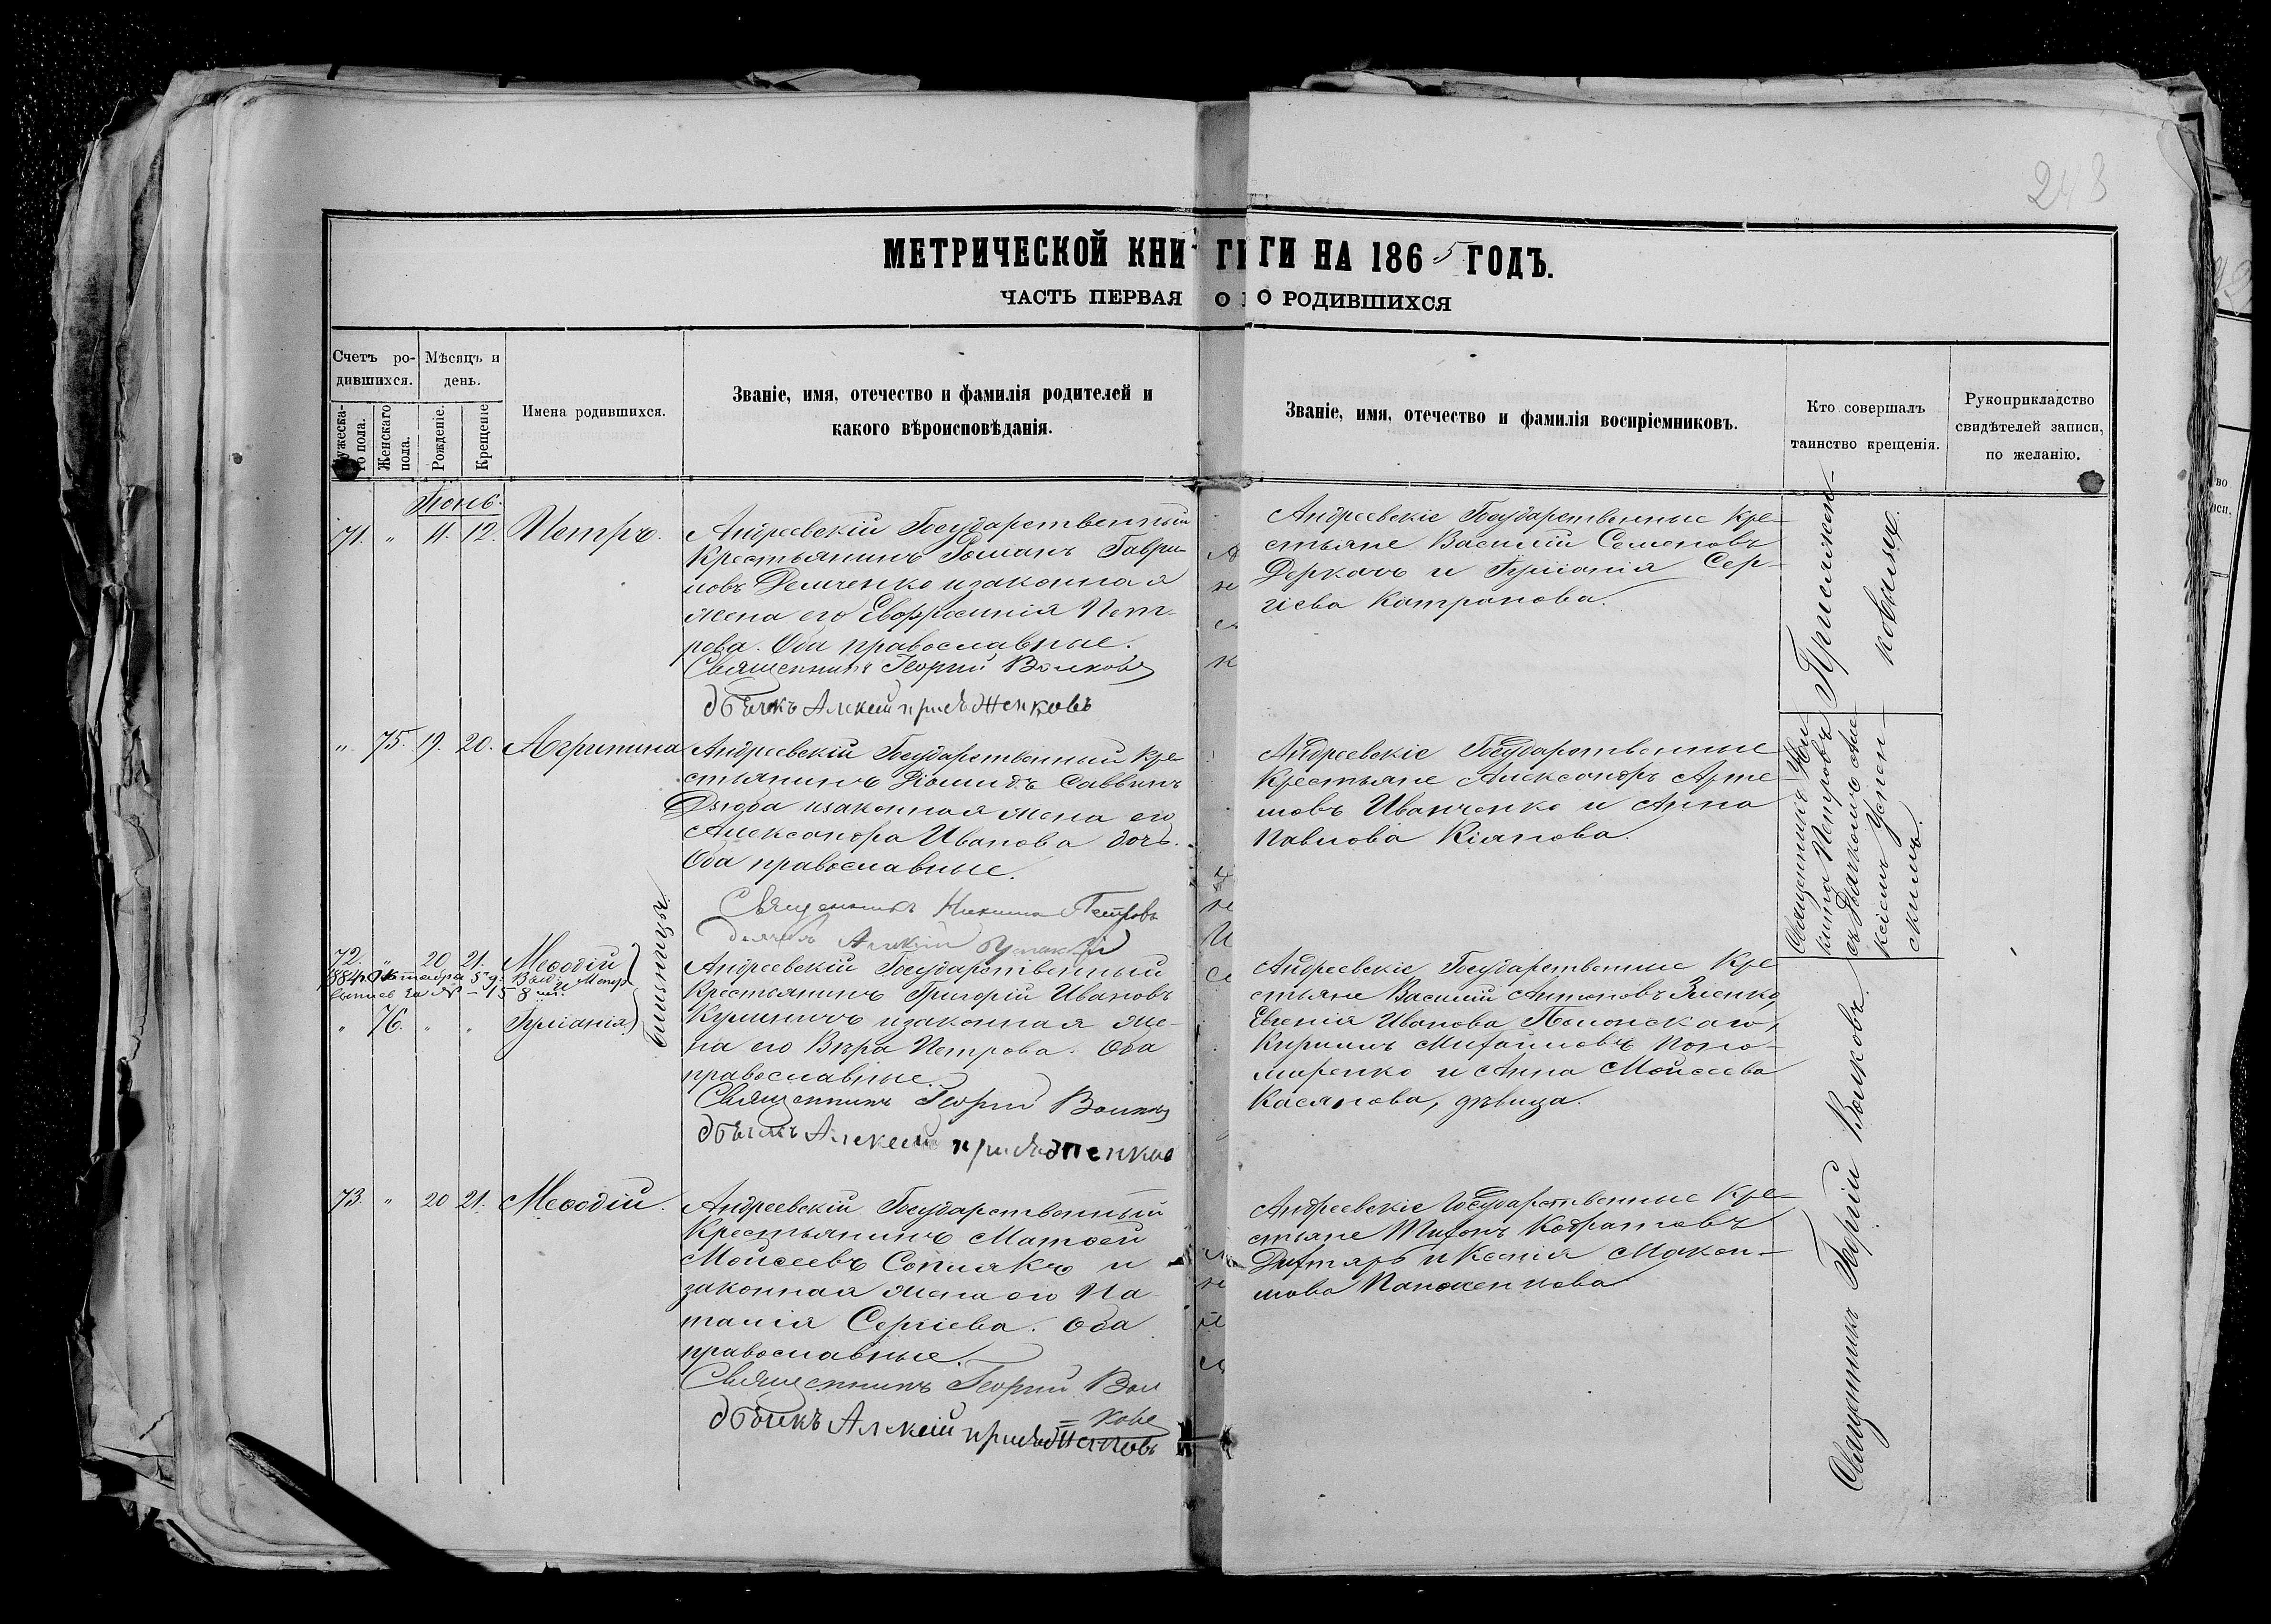 243
МЕТРИЧЕСКОЙ КНИГИ НА 1865 ГОДЪ.
ЧАСТЬ ПЕРВАЯ О РОДИВШИХСЯ
Счетъ ро-
дившихся.
Мѣсяцъ и
день.
Мужеска-
го пола.
Женскаго
пола.
Рожденіе.
Крещеніе
Имена родившихся.
Званіе, имя, отечество и фамилія родителей и
какого вѣроисповѣданія.
Званіе, имя, отечество и фамилія воспріемниковъ.
Кто совершалъ
таинство крещенія.
Рукоприкладство
свидѣтелей записи,
по желанію.
Іюнь.
71. " 11. 12. Петръ.
Андреевскій Государственный
Крестьянинъ Романъ Гаври-
ловъ Демченко и законная
жена его Евфросинія Пет-
рова. Оба православные.
Священникъ Георгій Волковъ
дьячекъ Алексій
Андреевскіе Государственные Кре-
стьяне Василій Семеновъ
Деркачъ и Іуліанія Сер-
гіева Катранова.
" 75. 19. 20. Агрипина
Андреевскій Государственный Кре
стьянинъ Діомидъ Саввинъ
Дзюба и законная жена его
Александра Иванова дочь.
Оба православные.
Священникъ Никита Петровъ
Алексій
Андреевскіе Государственные
Крестьяне Александръ Арте
мовъ Иванченко и Анна
Павлова Кіянова.
Священникъ Ни
кита Петровъ
съ дьячкомъ Але
ксіемъ Успен-
скимъ.
72. " 20 21. Меѳодій
1884 г. Октября 5 д.
за № 158
" 76. " " Іуліанія
близнецы.
Андреевскій Государственный
Крестьянинъ Григорій Ивановъ
Кулиничъ и законная же-
на его Вѣра Петрова. Оба
православные.
Священникъ Георгій Волковъ
дьячекъ Алексій
Андреевскіе Государственные Кре
стьяне Василій Антоновъ
Евгенія Иванова Полонскаго,
Кириллъ Михайловъ Поно-
маренко и Анна Моисеева
Касянова, дѣвица.
73. " 20 21. Меѳодій.
Андреевскій Государственный
Крестьянинъ Матѳей
Моисеевъ Сопилякъ и
законная жена его На-
талія Сергіева. Оба
православные.
Священникъ Георгій Вол
=ковъ
дьячекъ Алексій
Андреевскіе Государственные Кре-
стьяне Тихонъ Кодратовъ
Дихтярь и Ксенія Макси-
мова
Священникъ Георгій Волковъ.